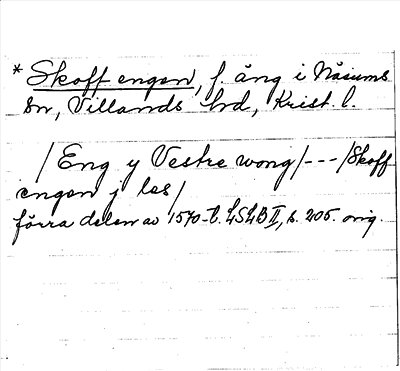 * Skoff engen, f. äng i Näsums
sn, Villands hd, Krist. l.
/Eng y Vestre wong/---/Skoff
engen j las/
förra delen av 1570-t. LSLB II, s. 205. orig.